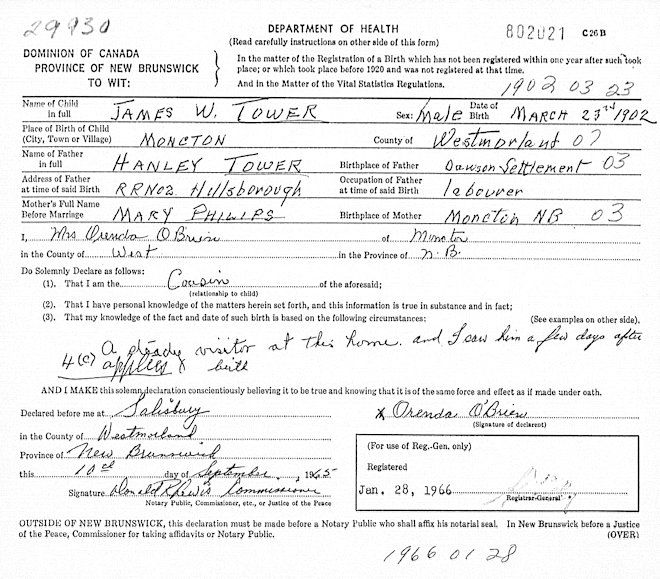 29930
DEPARTMENT OF HEALTH
802021 C26B
(Read carefully instructions on other side of this form)
DOMINION OF CANADA
PROVINCE OF NEW BRUNSWICK
TO WIT:
In the matter of the Registration of a Birth which has not been registered within one year after such took
place; or which took place before 1920 and was not registered at that time.
And in the Matter of the Vital Statistics Regulations.
1902 03 23
Name of Child in full JAMES W. TOWER Sex: Male Date of Birth MARCH 23rd 1902
Place of Birth of Child (City, Town or Village) MONCTON County of Westmorland 07
Name of Father in full HANLEY TOWER Birthplace of Father Dawson Settlement 03
Address of Father at time of said Birth RRNo2 Hillsborough Occupation of Father at time of said Birth labourer
Mother's Full Name Before Marriage MARY PHILIPS Birthplace of Mother Moncton NB 03
I, Mrs Orenda O'Brien of Moncton
in the County of West in the Province of N.B.
Do Solemnly Declare as follows:
(1). That I am the Cousin of the aforesaid;
(relationship to child)
(2). That I have personal knowledge of the matters herein set forth, and this information is true in substance and in fact;
(3). That my knowledge of the fact and date of such birth is based on the following circumstances: (See examples on other side).
A steady visitor at this home. and I saw him a few days after
4(c) applies birth
AND I MAKE this solemn declaration conscientiously believing it to be true and knowing that it is of the same force and effect as if made under oath.
Declared before me at Salisbury
x Orenda O'Brien
(Signature of declarent)
in the County of Westmorland
Province of New Brunswick
this 10th day of September, 1965
Signature Donald R Lewis Commissioner
Notary Public, Commissioner, etc., or Justice of the Peace
(For use of Reg.-Gen. only)
Registered
Jan. 28, 1966
Registrar-General
OUTSIDE OF NEW BRUNSWICK, this declaration must be made before a Notary Public who shall affix his notarial seal. In New Brunswick before a Justice
of the Peace, Commissioner for taking affidavits or Notary Public. (OVER)
1966 01 28